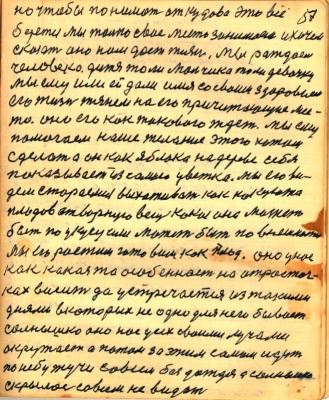 57
но чтобы понимат откудова это всё
беретц мы толко свае место занимаем и хочем
сказат оно нам дост мы раждаем
человека. дитя толи малчика толи девачку
мы ему или ей дали имя со своим здоровием
его тизн тянем на его причитающие ме-
то. оно его как такового ждет. мы ему
помогаем наше желание этого хотим
сделат а он как яблоко на дереве себя
показывает из самого цветка. мы его ви-
дем стараемся выхаживат как какуюта
плодоватворную вещ кокои она может
быт по укусу или может быт по внешности
мы его растим готовим как плод. оно у нас
как какаята особеннаст на отросточ-
ках висит да устречается из такими
днями в которых не одно для него бывает
солнышко оно нас усех своими лучами
окружает а потом за этим самом идут
по небу тучи совсем без дождя а солнышко
скрылос совсем не видат